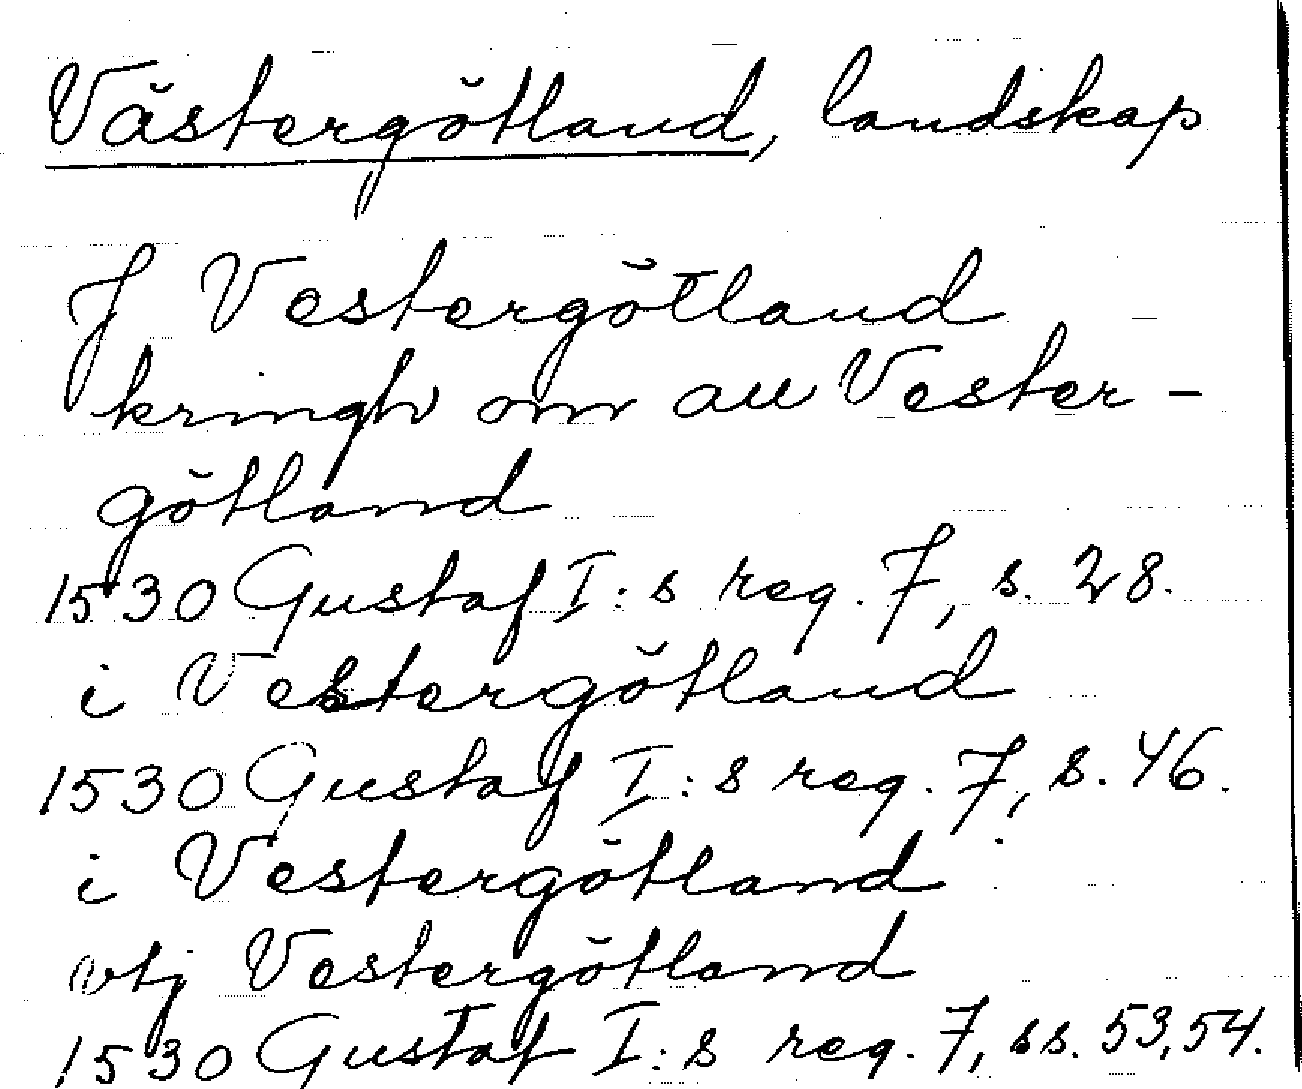 Västergötland, landskap
J Vestergötland
kringh om all Vester-
götland
1530 Gustaf I:s reg. 7, s. 28.
i Vestergötland
1530 Gustaf I:s reg. 7, s. 46.
i Vestergötland
vtj Vestergötland
1530 Gustaf I:s reg. 7, ss. 53,54.